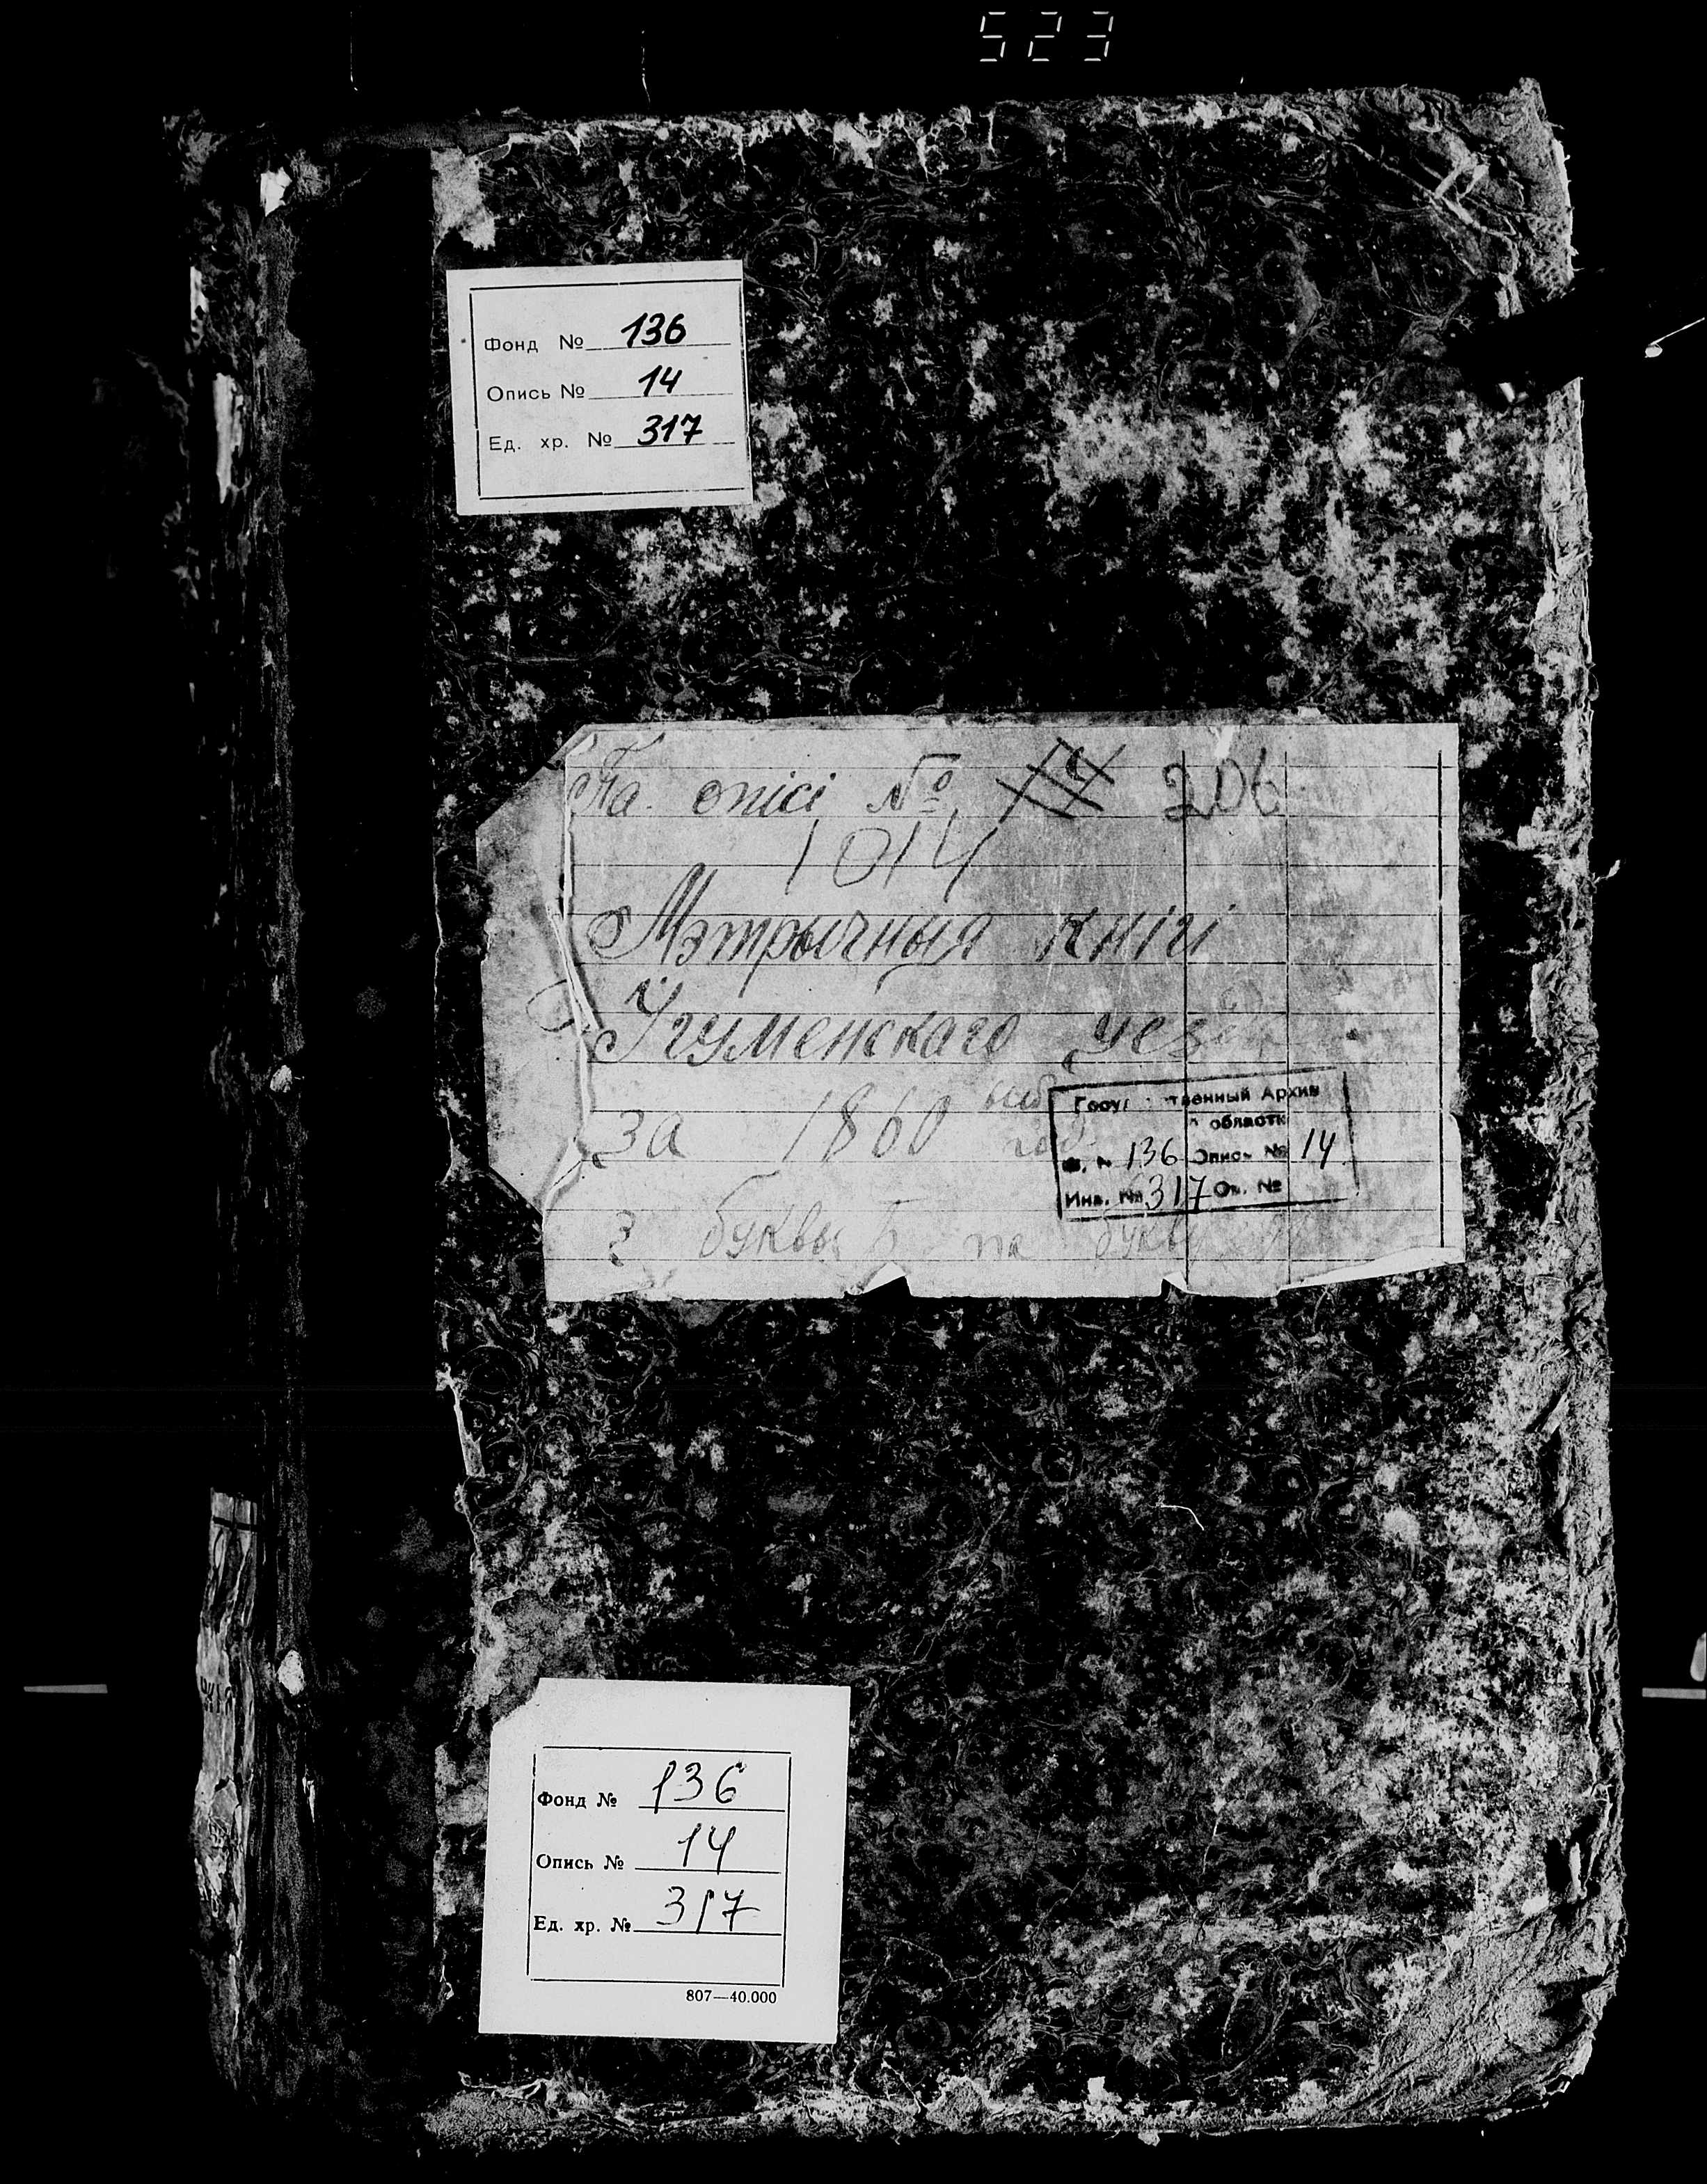 523
Фонд № 136
Опись № 14
Ед. хр. № 317
Па опісі № 14 206
1014
Мэтрычныя кнігі
Ігуменскаго уезда
За 1860 год
Госуд твенный Архив
области
Ф. № 136 Опись № 14
Инв. № 317 Оп. №
З буквы Б па букву
Фонд № 136
Опись № 14
Ед. хр. № 317
807—40.000